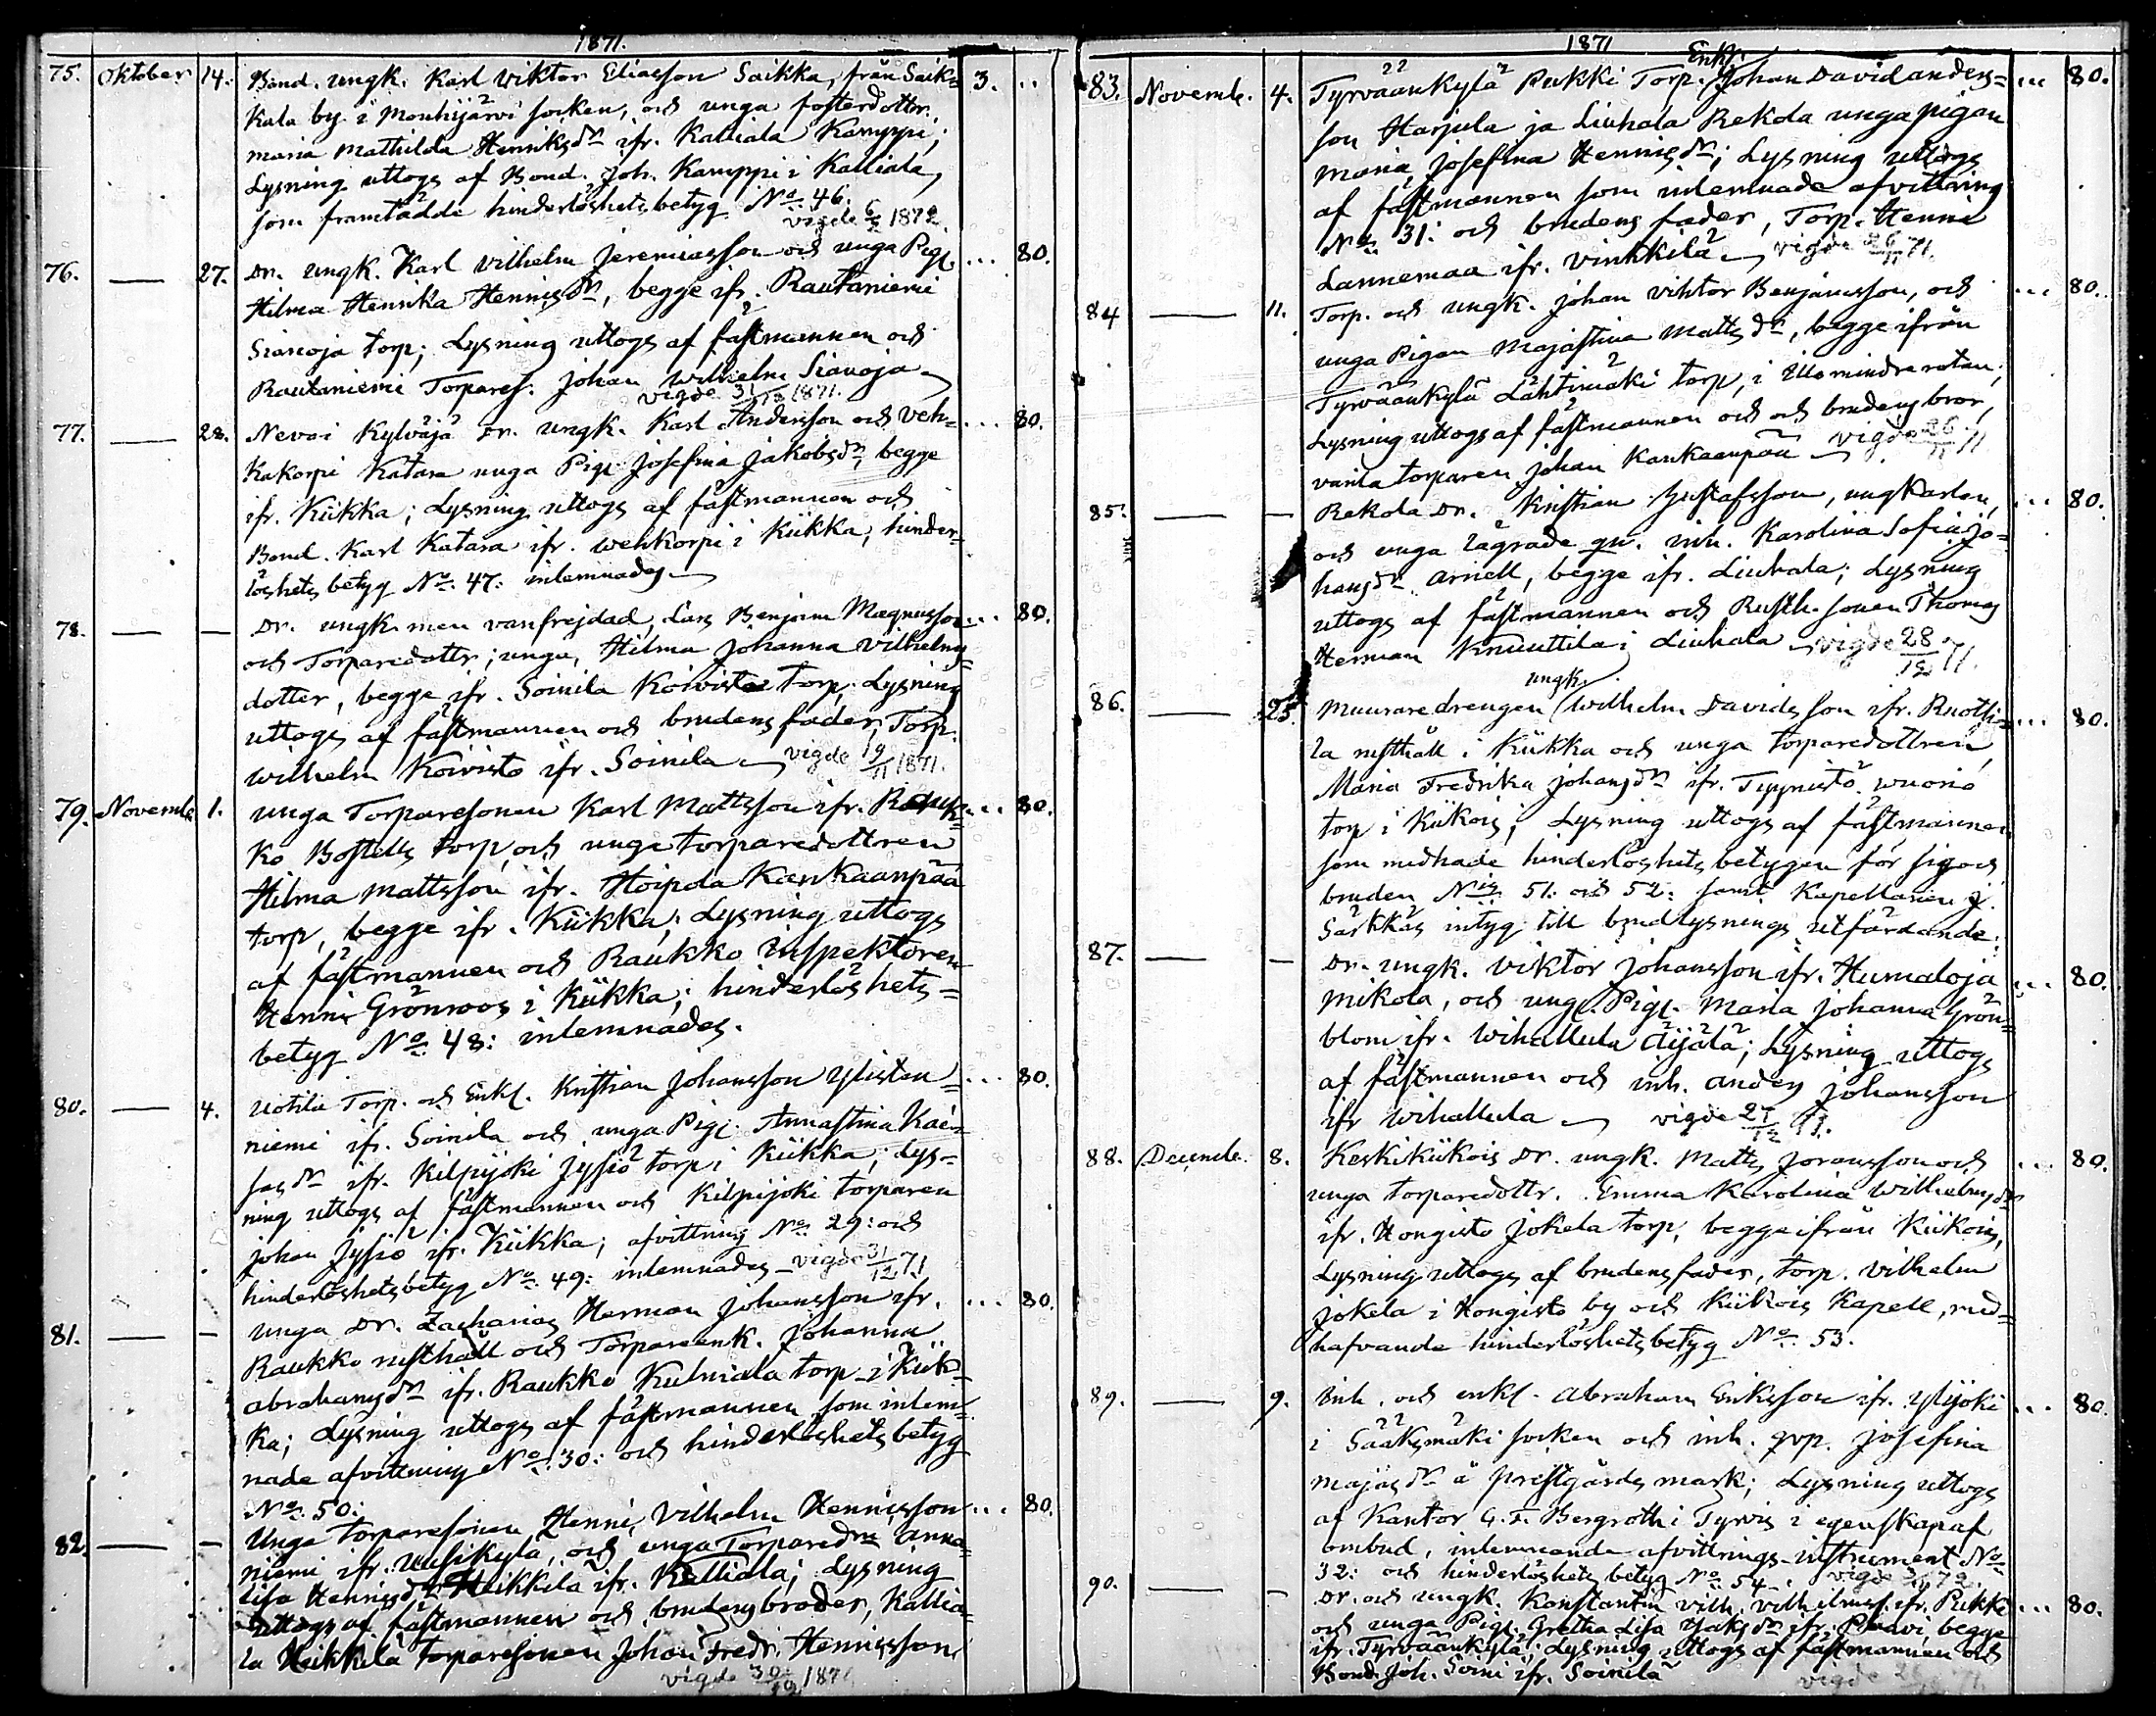 1871.
75. Oktober 14. Bond. ungk. Karl Viktor Eliasson Saikka, från Saik= 3. ..
kala by i Mouhijärvi socken, och unga fosterdottr.
Maria Mathilda Henriksdr ifr. Kalliala Kamppi;
Lysning uttogs af Bond. Joh. Kamppi i Kalliala,
som framtädde hinderlöshets betyg No 46.
vigde 6/2 1872.
76. — 27. Dr. ungk. Karl Vilhelm Jeremiasson och unga Pig. ... 80.
Hilma Henrika Hennigsdr, begge ifr. Rautaniemi
Sianoja torp; Lysning uttogs af fästmannen och
Rautaniemi Torpares. Johan Wilhelm Sianoja
vigde 31/12 1871.
77. — 28. Nevoi Kylväjä Dr. ungk. Karl Andersson och Veh= ... 80.
kakorpi Katara unga Pig. Josefina Jakobsdr, begge
ifr. Kiikka; Lysning uttogs af fästmannen och
Bond. Karl Katara ifr. Wehkorpi i Kiikka, hinder=
löshets betyg No. 47: inlemnades
78. — — Dr. ungk. men vanfrejdad, Lars Benjam Magnusson ... 80.
och Torparedottr; unga, Hilma Johanna Vilhelms=
dotter, begge ifr. Soinila Koivisto torp; Lysning
uttogs af fästmannen och brudens fader, Torp.
Wilhelm Koivisto ifr. Soinila vigde 19/11 1871.
79. Novemb. 1. Unga Torparesonen Karl Mattsson ifr. Rauk= ... 80.
ko Bostells torp, och unga torparedottren
Hilma Mattsson ifr. Hoipola Kankaanpää
torp, begge ifr. Kiikka; Lysning uttogs
af fästmannen och Raukko Inspektoren
Henni Grönroos i Kiikka; hinderlöshets=
betyg No 48: inlemnades.
80. — 4. Uotila Torp. och Enkl. Kristian Johansson Ylisten= ... 80.
niemi ifr. Soinila och unga Pig. Annastina Kai=
sasdr ifr. Kilpijoki Jysiö torp i Kiikka; Lys=
ning uttogs af fästmannen och Kilpijoki torparen
Johan Jysiö ifr. Kiikka; afvittning No. 29: och
hinderlöshetsbetyg No. 49: inlemnades – vigde 31/12 71
81. — — Unga Dr. Zacharias Herman Johansson ifr. ... 80.
Raukko rusthåll och Torpareenk. Johanna
Abrahamsdr ifr. Raukko Kulmala torp i Kiik=
ka; Lysning uttogs af fästmannen, som inlem=
nade afvittning No. 30: och hinderlöshets betyg
No. 50:
82. — — Unga torparesonen Henni Vilhelm Hennigsson ... 80.
niemi ifr. Uusikylä, och unga Torparedr Anna
Lisa Hennigsdr Heikkilä ifr. Kalliala; Lysning
uttogs af fästmannen och brudens broder, Kallia=
la Heikkilä torparesonen Johan Fredr. Hennigsson
vigde 30/12 1871
1871
Enkl.
83. Novemb. 4. Tyrväänkylä Pukki Torp. Johan David Anders= ... 80.
son Harjula ja Liuhala Rekola unga pigan
Maria Josefina Hennigsdr; Lysning uttogs
af fästmannen som inlemnade afvittning
No 31: och brudens fader, Torp. Henni
Lannemaa ifr. Vinkkilä vigde 26/11 71.
84 — 11. Torp. och ungk. Johan Viktor Benjamsson, och ... 80.
unga Pigan Majastina Mattsdr, begge ifrån
Tyrväänkylä Lähtimäki torp, i Illo mindre rotan;
Lysning uttogs af fästmannen och och brudens bror,
varila torparen Johan Kankaanpää vigde 26/11 71
85. — — Rekola Dr. Kristian Gustafsson, ungkarlen, ... 80.
och unga lägrade qv. inh. Karolina Sofia Jo=
hansdr Arnell, begge ifr. Liuhala; Lysning
uttogs af fästmannen och Rusth. sonen Thomas
Herman Knuuttila i Liuhala vigde 28/12 71.
ungk.
86. — 25. Muuraredrengen Wilhelm Davidsson ifr. Ruotti= ... 80.
la rusthåll i Kiikka och unga torparedottren,
Maria Fredrika Johansdr ifr. Tyynistö Wuorio
torp i Kiikois; Lysning uttogs af fästmannen
som medhade hinderlöshets betygen för sig och
bruden Nis 51: och 52: samt Kapellanen J.
Särkkäs intyg till brudlysnings utfärdande:
87. — — Dr. ungk. Viktor Johansson ifr. Humaloja ... 80.
Mikola, och unga Pig. Maria Johanna Grön=
blom ifr. Wihattula Äijälä; Lysning uttogs
af fästmannen och inh. Anders Johansson
ifr Wihattula vigde 27/12 71.
88. Decemb. 8. Keskikiikois Dr. ungk. Matts Joransson och ... 80.
unga torparedottr. Emma Karolina Wilhelmsdr
ifr. Hongisto Jokela torp, begge ifrån Kiikois,
Lysning uttogs af brudens fader, torp. Vilhelm
Jokela i Hongisto by och Kiikois Kapell, med=
hafvande hinderlöshetsbetyg No. 53.
89. — 9. Inh. och enkl. Abraham Eriksson ifr. Ylijoki ... 80.
i Sääksmäki socken och inh. qvp. Josefina
Majasdr å prestgårds mark; Lysning uttogs
af Kantor G. F. Bergroth i Tyrvis i egenskap af
ombud, inlemnande afvittrings-instrument No
32: och hinderlöshets betyg No 54 – vigde 72.
90. — — Dr. och ungk. Konstantin Vilh. Vilhelmss. ifr. Pukki ... 80.
och unga Pig. Gretha Lisa Isaksdr ifr. Paavi, begge
ifr. Tyrväänkylä; Lysning uttogs af fästmannen och
Bond. Joh. Soini ifr. Soinila
vigde 71